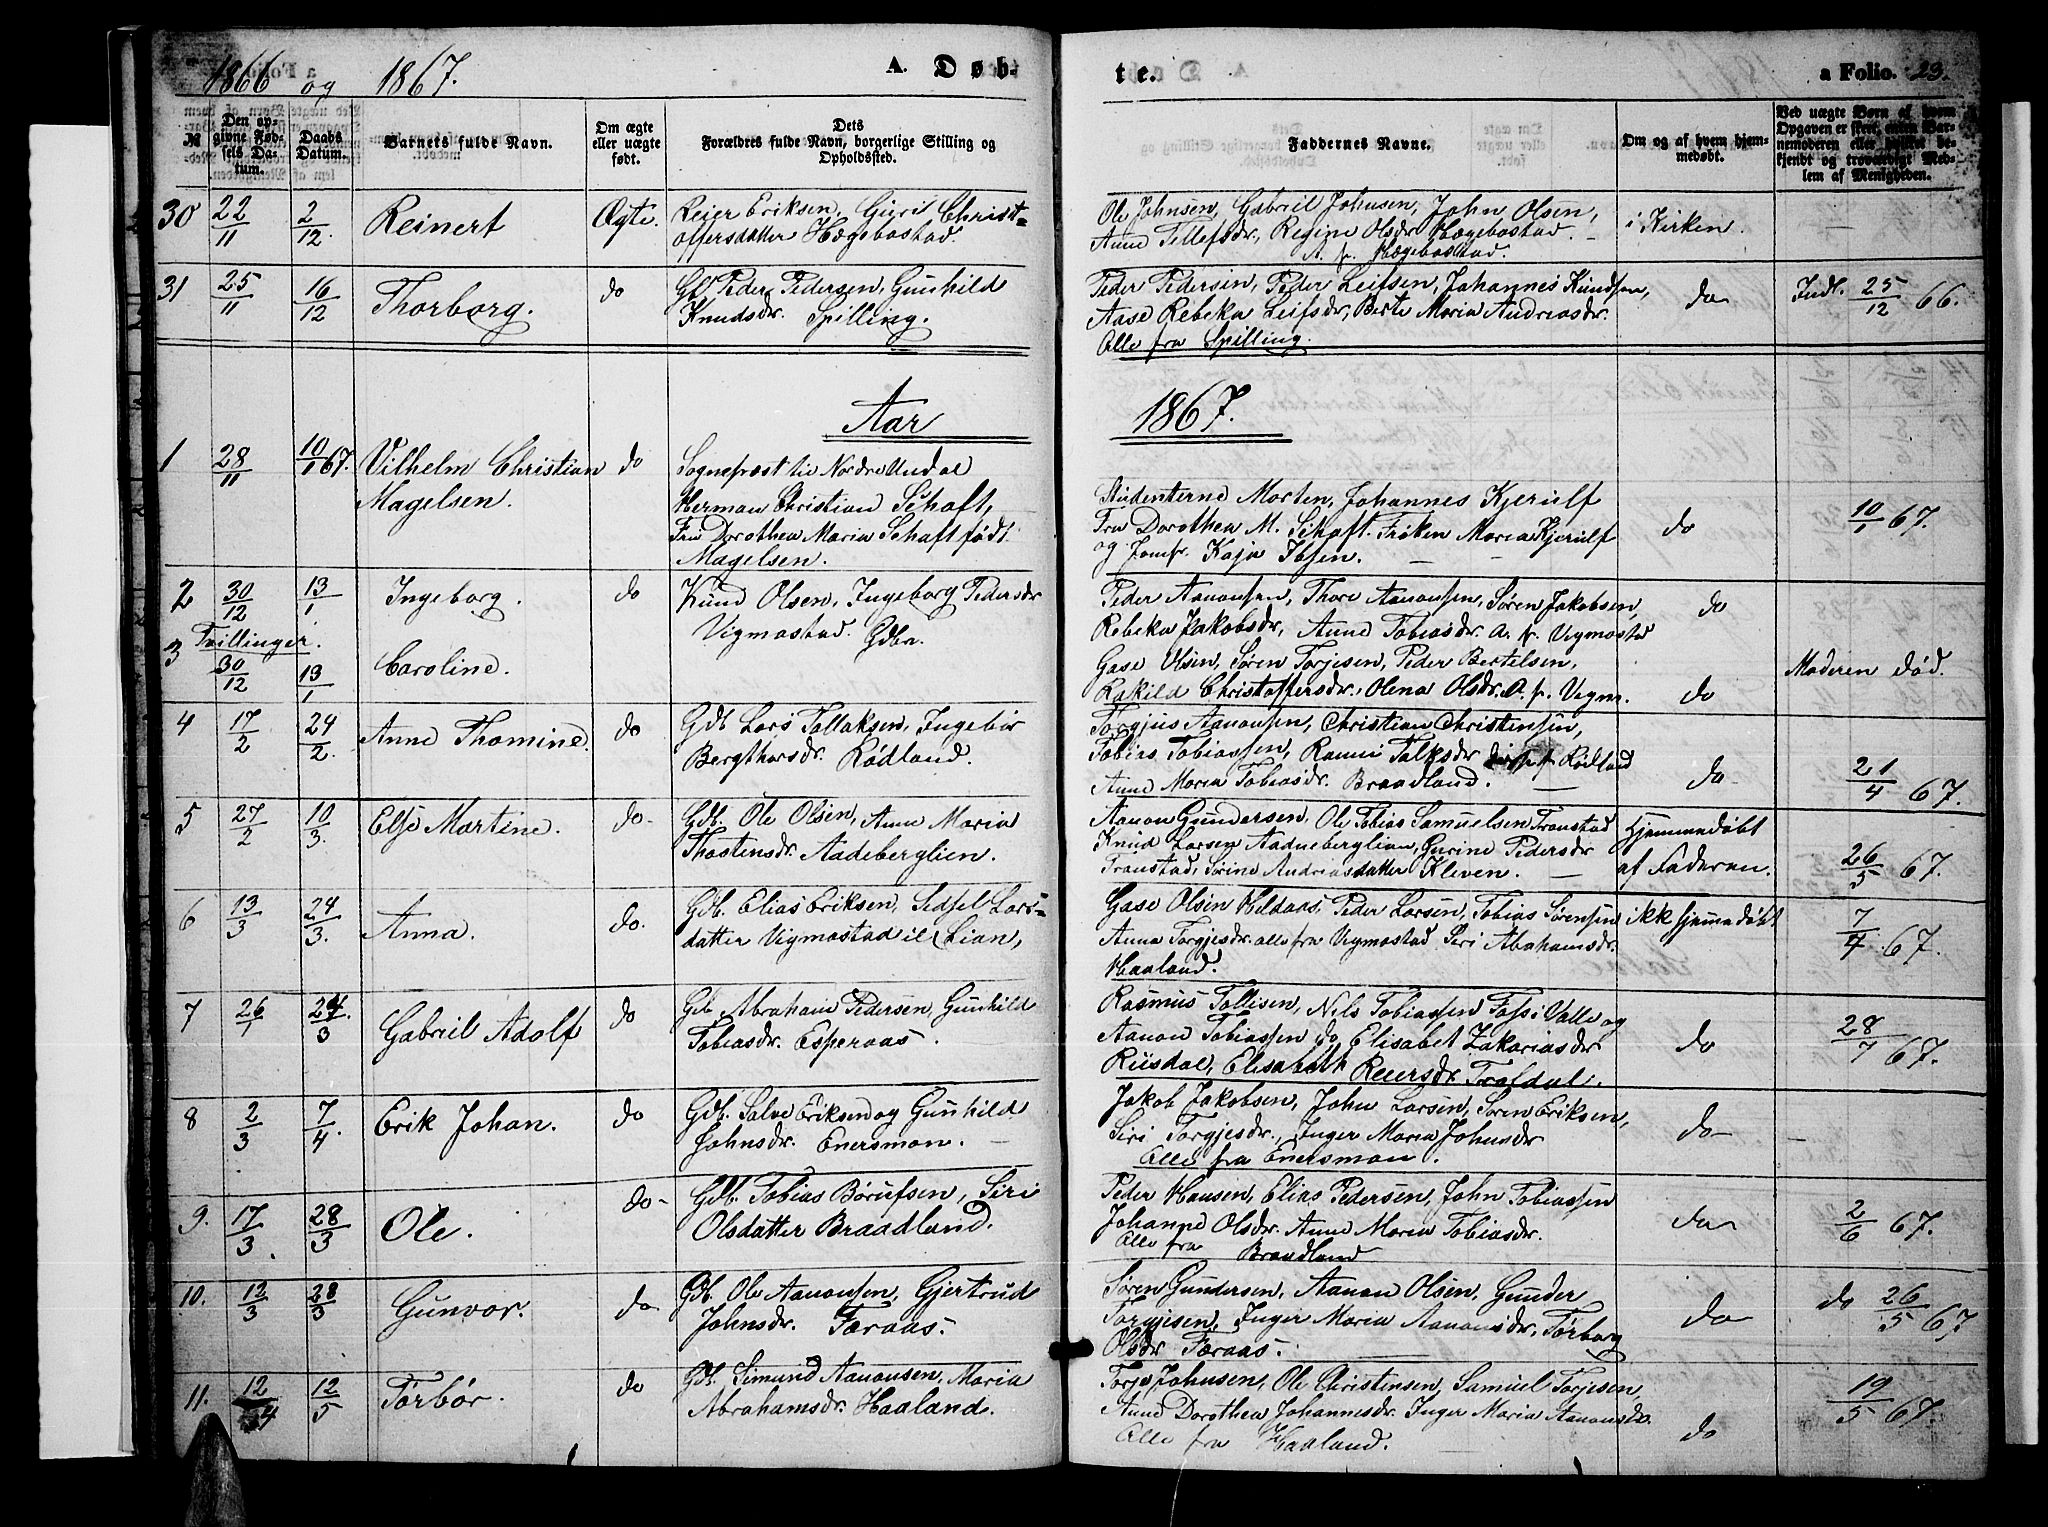 1866 og 1867.
A. Døb-
te.
a Folio. 23.
№
Den op-
givne Fød-
sels Da-
tum.
Daabs
Datum.
Barnets fulde Navn.
Om ægte
eller uægte
født.
Dets
Forældres fulde Navn, borgerlige Stilling og
Opholdssted.
Faddernes Navne.
Om og af hvem hjem-
medøbt.
Ved uægte Børn af hvem
Opgaven er skeet, enten Bar-
nemoderen eller hvilket be-
kjendt og troværdigt Med-
lem af Menigheden.
30 22/11 2/12. Reinert Ægte. Reier Eriksen, Guril Christ-
offersdatter Hægebostad.
Ole Johnsen, Gabriel Johnsen, John Olsen,
Anne Tellefsdr, Regine Olsdr Hægebostad. –
A. fr. Hægebostad.
i Kirken.
31 25/11 16/12 Thorborg. do Gb Peder Pedersen, Gunhild
Knudsdr. Spilling.
Peder Pedersen, Peder Leifsen, Johannes Knudsen,
Aase Rebeka Leifsdr, Berte Maria Andreasdr.
Alle fra Spilling.
do Indl. 25/12 66.
Aar 1867.
1 28/11 10/1 67. Vilhelm Christian
Magelsen. do
Sogneprest til Nordre Undal
Herman Christian Schaft,
Fru Dorothea Maria Schaft født
Magelsen.
Studenterne Morten, Johannes Kjerulf
Fru Dorothea M. Schaft. Frøken Maria Kjerulf
og Jomfr. Kaja Ibsen.
do 10/1 67.
2 30/12 13/1 Ingeborg. do Knud Olsen, Ingeborg Pedersdr
Vigmostad. Gdbr.
Peder Aanonsen, Thore Aanonsen, Søren Jakobsen,
Rebeka Jakobsdr, Anne Tobiasdr. A. fr. Vigmostad
do
Tvillinger.
3 30/12 13/1 Caroline.
Gase Olsen, Søren Torjesen, Peder Bertelsen,
Rakild Christoffersdr., Olena Olsdr. A. fr. Vigm.
do Moderen død.
4 17/2 24/2. Anne Thomine. do Gdb Lars Tollaksen, Ingebor
Bergthorsdr. Rødland.
Torgjus Aanonsen, Christian Christensen,
Tobias Tobiassen, Rannei Falksdr Rødland
Anne Maria Tobiasdr. Braadland.
do 21/4 67.
5 27/2 10/3. Else Martine. do- Gdb. Ole Olsen, Anne Maria
Thostensdr. Aadeberglien.
Aanon Gundersen, Ole Tobias Samuelsen Tronstad
Knud Larsen Aadneberglien, Gurine Pedersdr
Tronstad, Sørine Andreasdatter Kleven.
Hjemmedøbt
af Faderen. 26/5 67.
6 13/3 24/3. Anna. do. Gdb. Elias Eriksen, Sidsel Lars-
datter Vigmostad Lian,
Gase Olsen Heldaas, Peder Larsen, Tobias Sørensen
Anna Torgjesdr. alle fra Vigmostad, Siri Abrahamsdr.
Haaland.
ikke hjemmedøbt 7/7 67.
7 26/1 24/3 Gabriel Adolf do Gdb Abraham Pedersen, Gunhild
Tobiasdr. Esperaas.
Rasmus Tollisen, Nils Tobiassen Foss i Valle og
Aanon Tobiassen do, Elisabet Zakariasdr
Riisdal, Elisabeth Reiersdr Trældal.
do 28/7 67.
8 2/3 7/4. Erik Johan. do Gdb. Salve Eriksen og Gunhild
Johnsdr. Enersmon.
Jakob Jakobsen, John Larsen, Søren Eriksen,
Siri Torgjesdr., Inger Maria Johnsdr
Alle fra Enersmon.
do
9. 17/3. 28/3 Ole. do- Gdb. Tobias Børufsen, Siri
Olsdatter Braadland.
Peder Hansen, Elias Pedersen, John Tobiassen
Johanne Olsdr. Anne Maria Tobiasdr.
Alle fra Braadland
do 2/6 67.
10. 12/3 28/3 Gunvor. do Gdb. Ole Aanonsen, Gjertrud
Johnsdr. Færaas.
Søren Gundersen, Aanon Olsen, Gunder
Torgjesen, Inger Maria Aanonsdr, Tørborg
Olsdr Færaas.
do do 26/5 67
11. 12/4 12/5 Tørbor. do Gdb. Simund Aanonsen, Maria
Abrahamsdr. Haaland.
Torjo Johnsen, Ole Christensen, Samuel Torjesen,
Anne Dorothea Johannesdr. Inger Maria Aanonsdr.
Alle fra Haaland.
do 19/5 67.